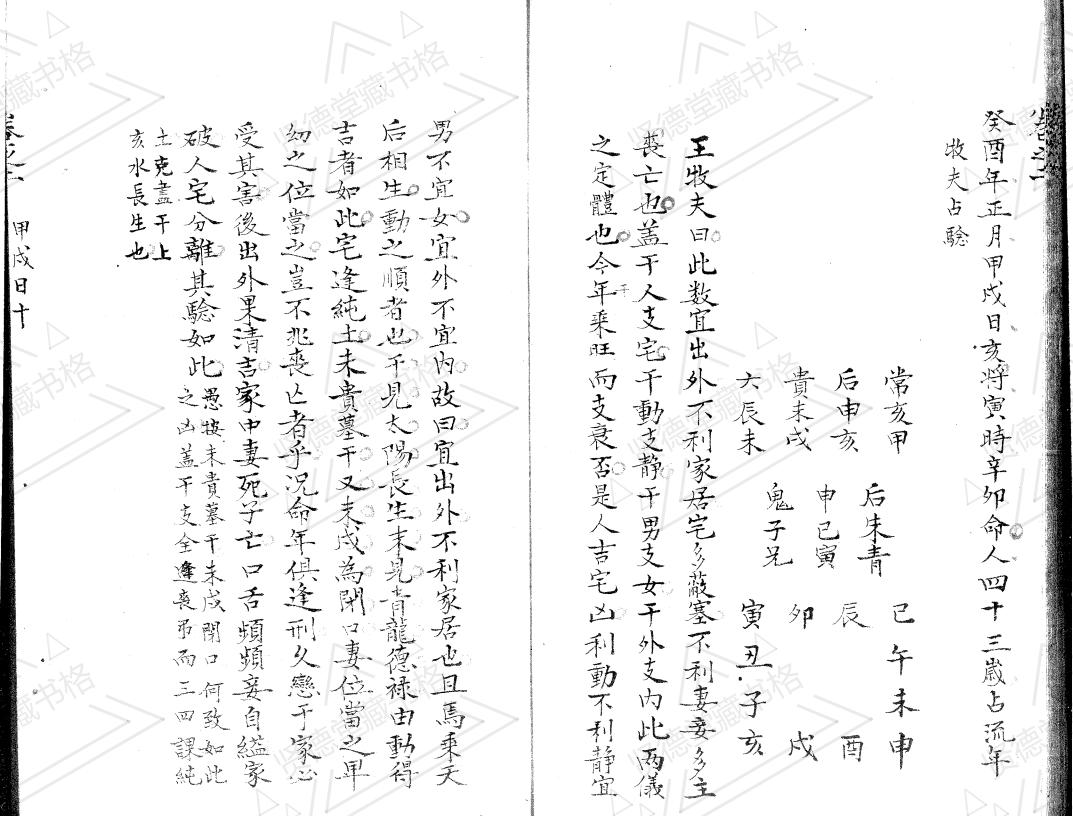 癸酉年正月甲戌日亥將寅時辛卯命人四十三歲占流年
牧夫占驗
常亥甲
后申亥
貴未戌
六辰未
后朱青
申巳寅
鬼子兄
巳午未申
辰酉
卯戌
寅丑子亥
王牧夫曰此数宜出外不利家居宅多蔽塞不利妻妾多主
喪亡也蓋干人支宅干動支静干男支女干外支内此两儀
之定體也今年乘旺而支衰否是人吉宅凶利動不利静宜
男不宜女宜外不宜内故曰宜出外不利家居也且馬乘天
后相生動之順者也干見太陽長生末見青龍德禄由動得
吉者如此宅逢純土未貴墓干又未戌為閉口妻位當之卑
幼之位當之豈不兆喪亡者乎況命年俱逢刑久戀于家必
受其害後出外果清吉家中妻死子亡口舌頻頻妾自縊家
破人宅分離其驗如此愚按未貴墓干未戌閉口何致如此
之凶蓋干支全逢喪弔而三四課純
土克盡干上
亥水長生也
卷之二
甲戌日十